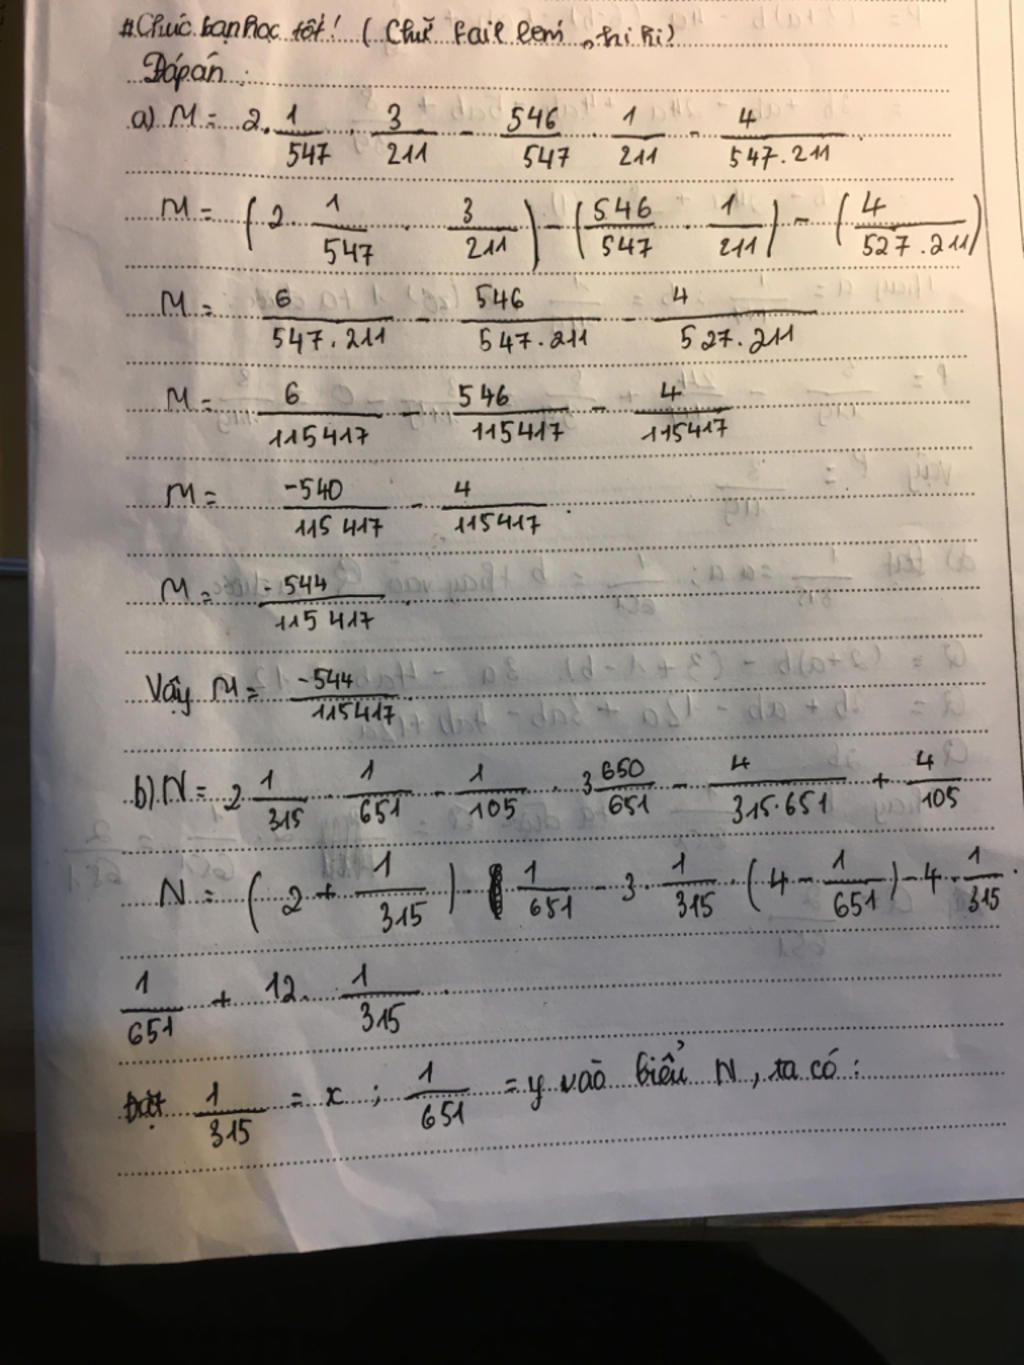 #Chúc bạn học tốt! ( Chữ fail lem, hi hi)
Đáp án :
a) M = 2. 1/547 . 3/211 - 546/547 . 1/211 - 4/547.211
M = ( 2. 1/547 . 3/211 ) - ( 546/547 . 1/211 ) - ( 4/527.211 )
M = 6/547.211 - 546/547.211 - 4/527.211
M = 6/115417 - 546/115417 - 4/115417
M = -540/115417 - 4/115417
M = -544/115417
Vậy M = -544/115417
b) N = 2 1/315 . 1/651 - 1/105 . 3 650/651 - 4/315.651 + 4/105
N = ( 2 + 1/315 ) . 1/651 - 3. 1/315 . ( 4 - 1/651 ) - 4. 1/315 .
1/651 + 12. 1/315
Đặt 1/315 = x ; 1/651 = y vào biểu N, ta có :